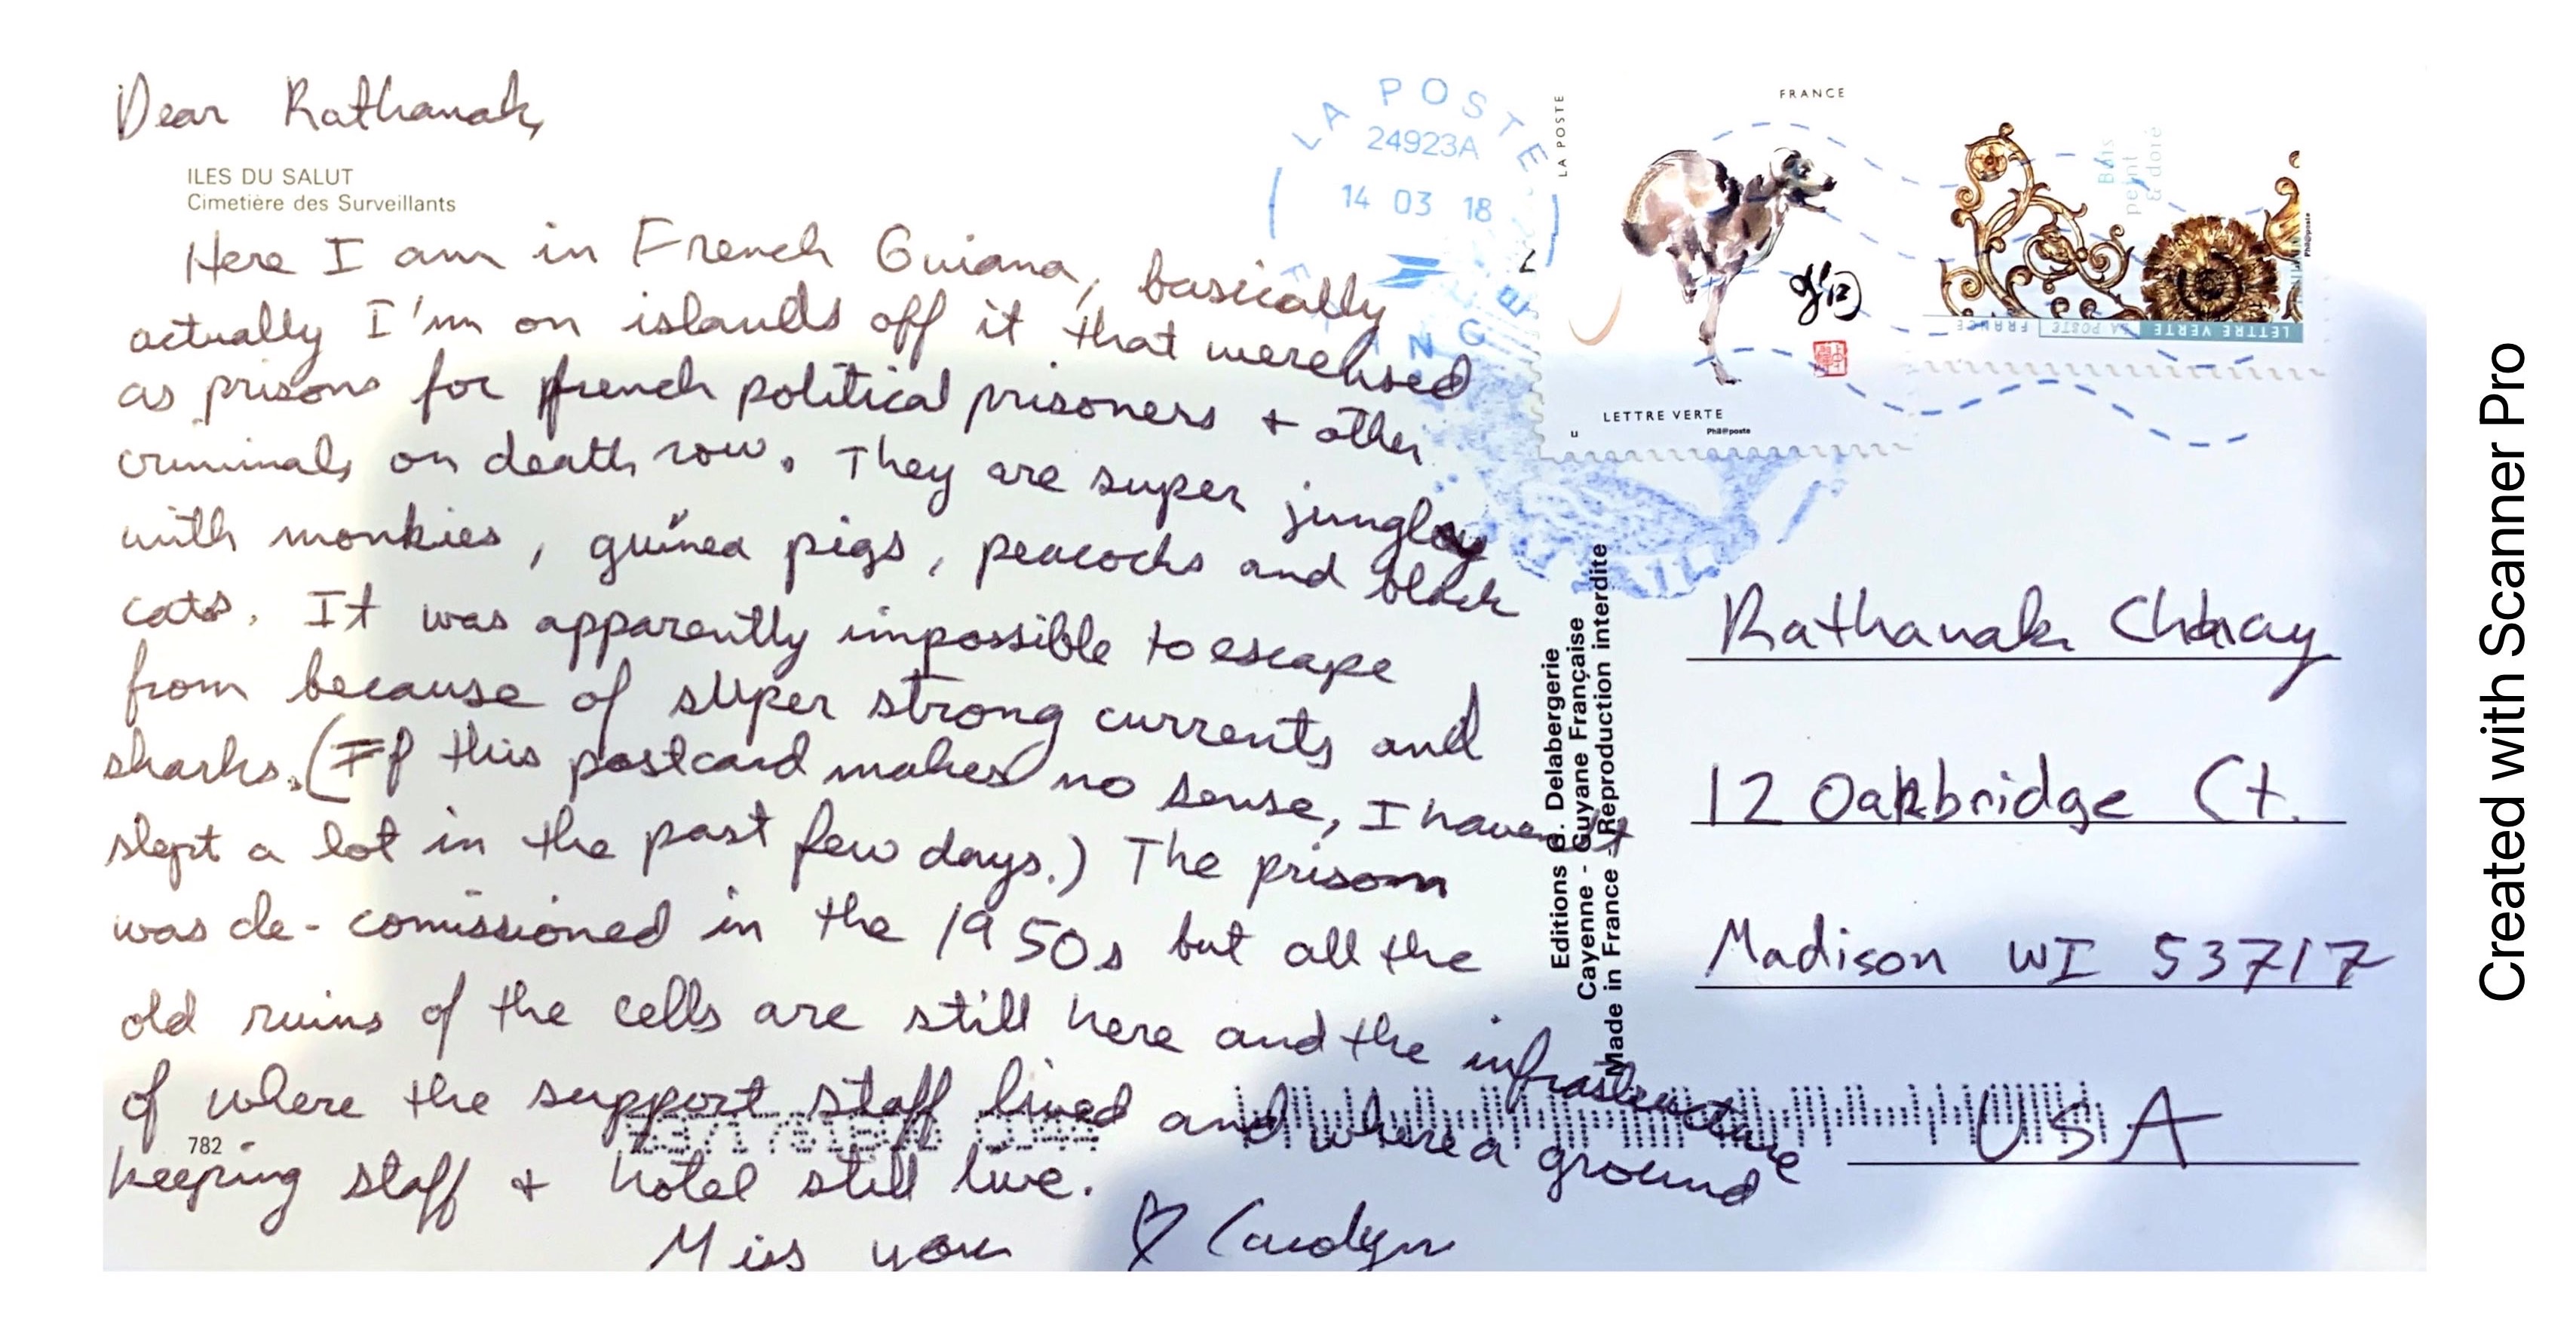 Dear Rathanak,
ILES DU SALUT
Cimetière des Surveillants
Here I am in French Guiana, basically
actually I'm on islands off it that were used
as prisons for french political prisoners + other
criminals on death row. They are super jungley
with monkies, guinea pigs, peacocks and black
cats. It was apparently impossible to escape
from because of super strong currents and
sharks. (If this postcard makes no sense, I haven't
slept a lot in the past few days.) The prison
was de-comissioned in the 1950s but all the
old ruins of the cells are still here and the infrastructure
of where the support staff lived and where a ground
782
keeping staff + hotel still live.
Miss you ♡ Carolyn
LA POSTE
24923A
14 03 18
LA POSTE
FRANCE
LETTRE VERTE
Phil@poste
Bois
peint
& doré
Phil@poste
LETTRE VERTE LA POSTE FRANCE
Editions G. Delabergerie
Cayenne - Guyane Française
Made in France - Reproduction interdite
Rathanak Chhay
12 Oakbridge Ct.
Madison WI 53717
USA
Created with Scanner Pro